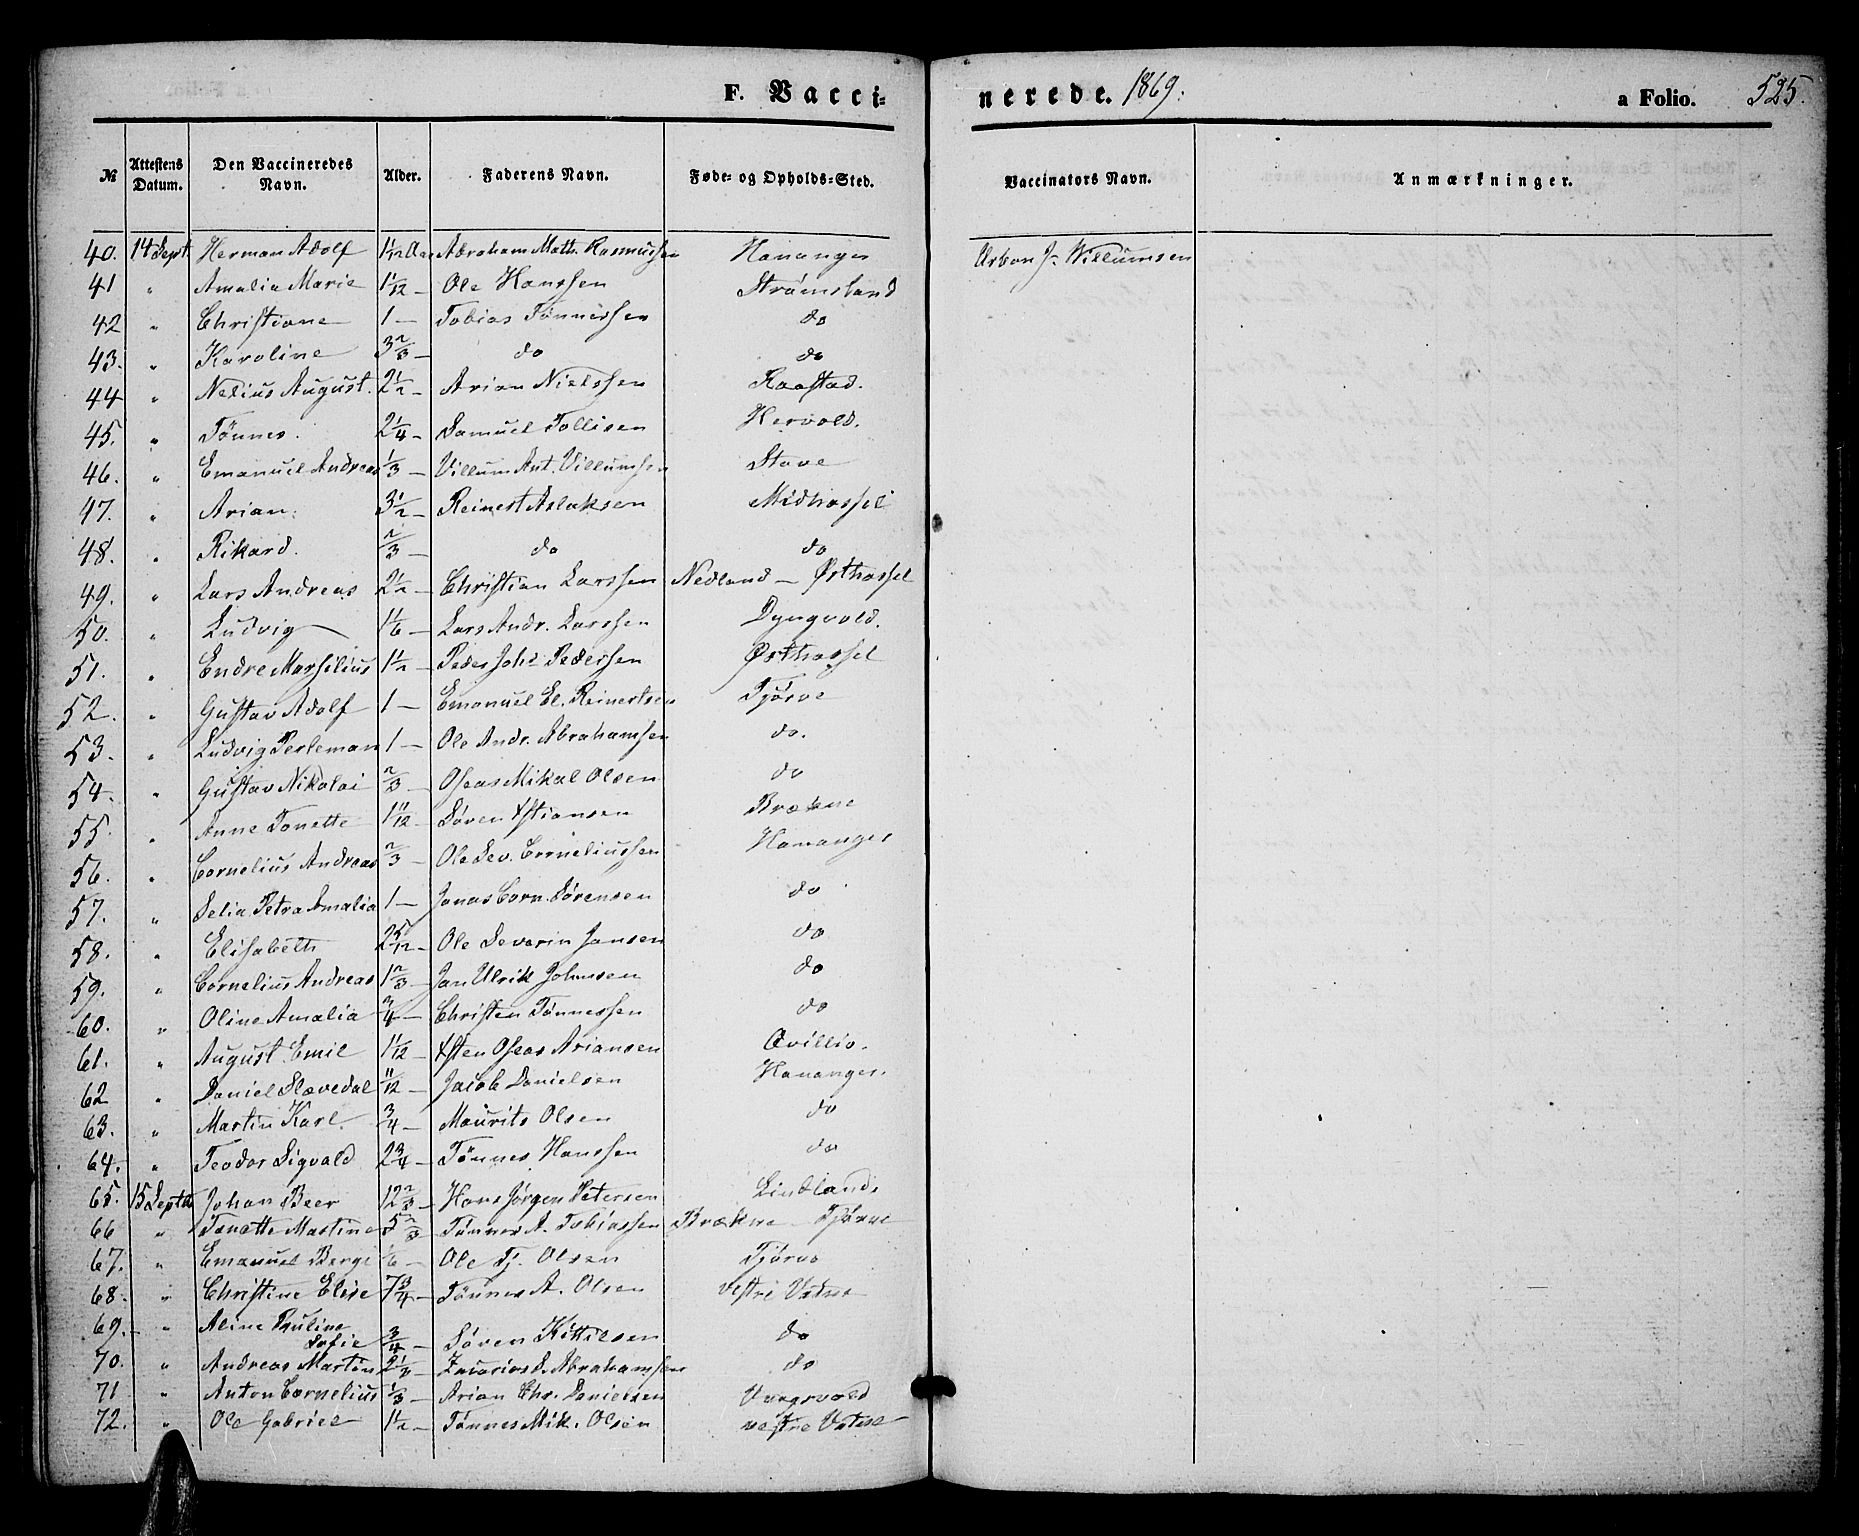 F. Vacci-
nerede. 1869.
a Folio. 525.
№ Attestens Datum. Den Vaccineredes Navn. Alder. Faderens Navn. Føde- og Opholds-Sted. Vaccinators Navn. Anmærkninger.
40. 14 Sept. Herman Adolf 1 1/2 Aar Abraham Math. Rasmussen Hananger Urban J. Willumsen
41 " Amalia Marie 1 1/12 Ole Hanssen Strømsland
42 " Christiane 1 — Tobias Tønnessen do
43. " Karoline 3 2/3 — do do
44 " Nelius August. 2 1/2 — Arian Nielssen Raastad.
45. " Tönnes. 2 1/4 — Samuel Tollisen Hervold.
46. " Emanuel Andreas 1/3 — Villum Ant. Villumsen Stave
47. " Arian. 3 1/2 — Reinert Aslaksen Midhassel
48. " Rikard. 2/3 — do do
49. " Lars Andreas 2 1/2 — Christian Larssen Nedland — Østhassel
50. " Ludvig 1 1/6 — Lars Andr. Larssen Dyngvold.
51. " Endre Marsilius 1 1/2 — Peder Joh: Pedersen Østhassel
52. " Gustav Adolf 1 — Emanuel El. Reinertsen Tjørve
53. " Ludvig Perleman 1 — Ole Andr. Abrahamsen do.
54. " Gustav Nikolai 2/3 — Oseas Mikal Olsen do
55. " Anne Tonette 1 11/12 — Søren Xstiansen Brækne
56. " Cornelius Andreas 2/3 — Ole Sev. Corneliussen Hananger
57. " Selia Petra Amalia 1 — Jonas Corn. Sørensen do
58. " Elisabeth 2 5/12 — Ole Severin Jansen do
59. " Cornelius Andreas 1 2/3 — Jan Ulrik Johnsen do
60. " Oline Amalia 3/4 — Christen Tønnessen do
61. " August Emil 1 1/12 — Xsten Oseas Ariansen Qvillio.
62 " Daniel Slævedal 11/12 — Jacob Danielsen Hananger.
63. " Martin Karl. 3/4 — Maurits Olsen do
64. " Teodor Sigvald 2 3/4 — Tönnes Hanssen do
65. 15 Septbr Johan Beer 12 2/3 — Hans Jørgen Petersen Lindlands
66 " Tonette Martine 5 2/3 Tønnes A. Tobiassen Brækne — Tjørve
67. " Emanuel Bergi 1/6 — Ole Tj. Olsen Tjørve
68. " Christine Elise 7 3/4 — Tönnes A. Olsen vestre Vatne
69. — " Aline Pauline
Sofie 3/4 — Søren Kittilsen do
70. " Andreas Martin 2 1/3 — Zacarias A. Abrahamsen do
71 " Anton Cornelius 1/3 — Arian Chr. Danielsen
72. " Ole Gabriel 1 1/2 — Tønnes Mik. Olsen vestre Vatne